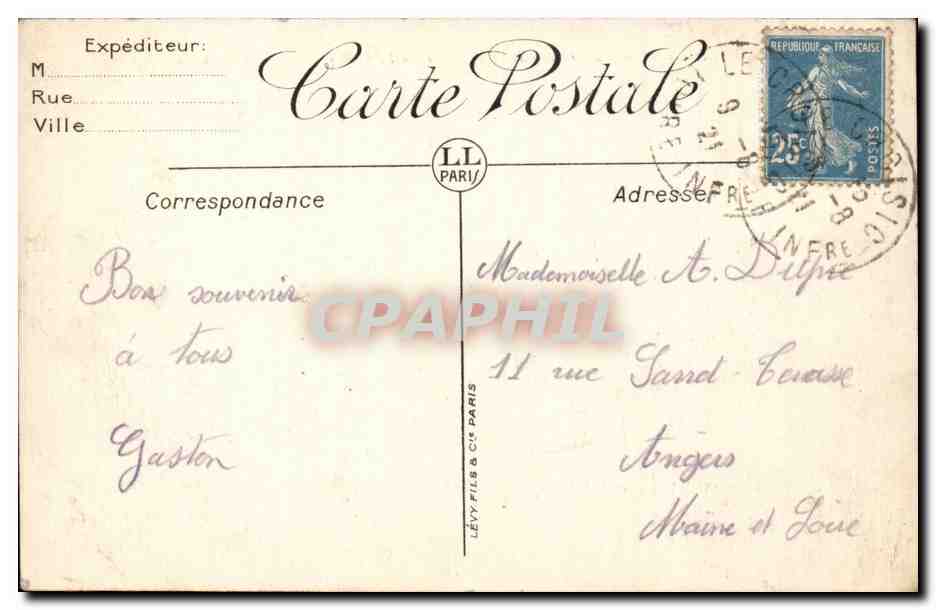 Expéditeur:
M
Rue
Ville
Carte Postale
REPUBLIQUE FRANÇAISE
25c
POSTES
LE CROISIC
9 -8 21
INFRE
LL
PARIS
Correspondance
Adresse
Bon souvenir
à tous
Gaston
Mademoiselle A.
11 rue
Angers
Maine et Loire
LÉVY, FILS & Cie PARIS
CPAPHIL